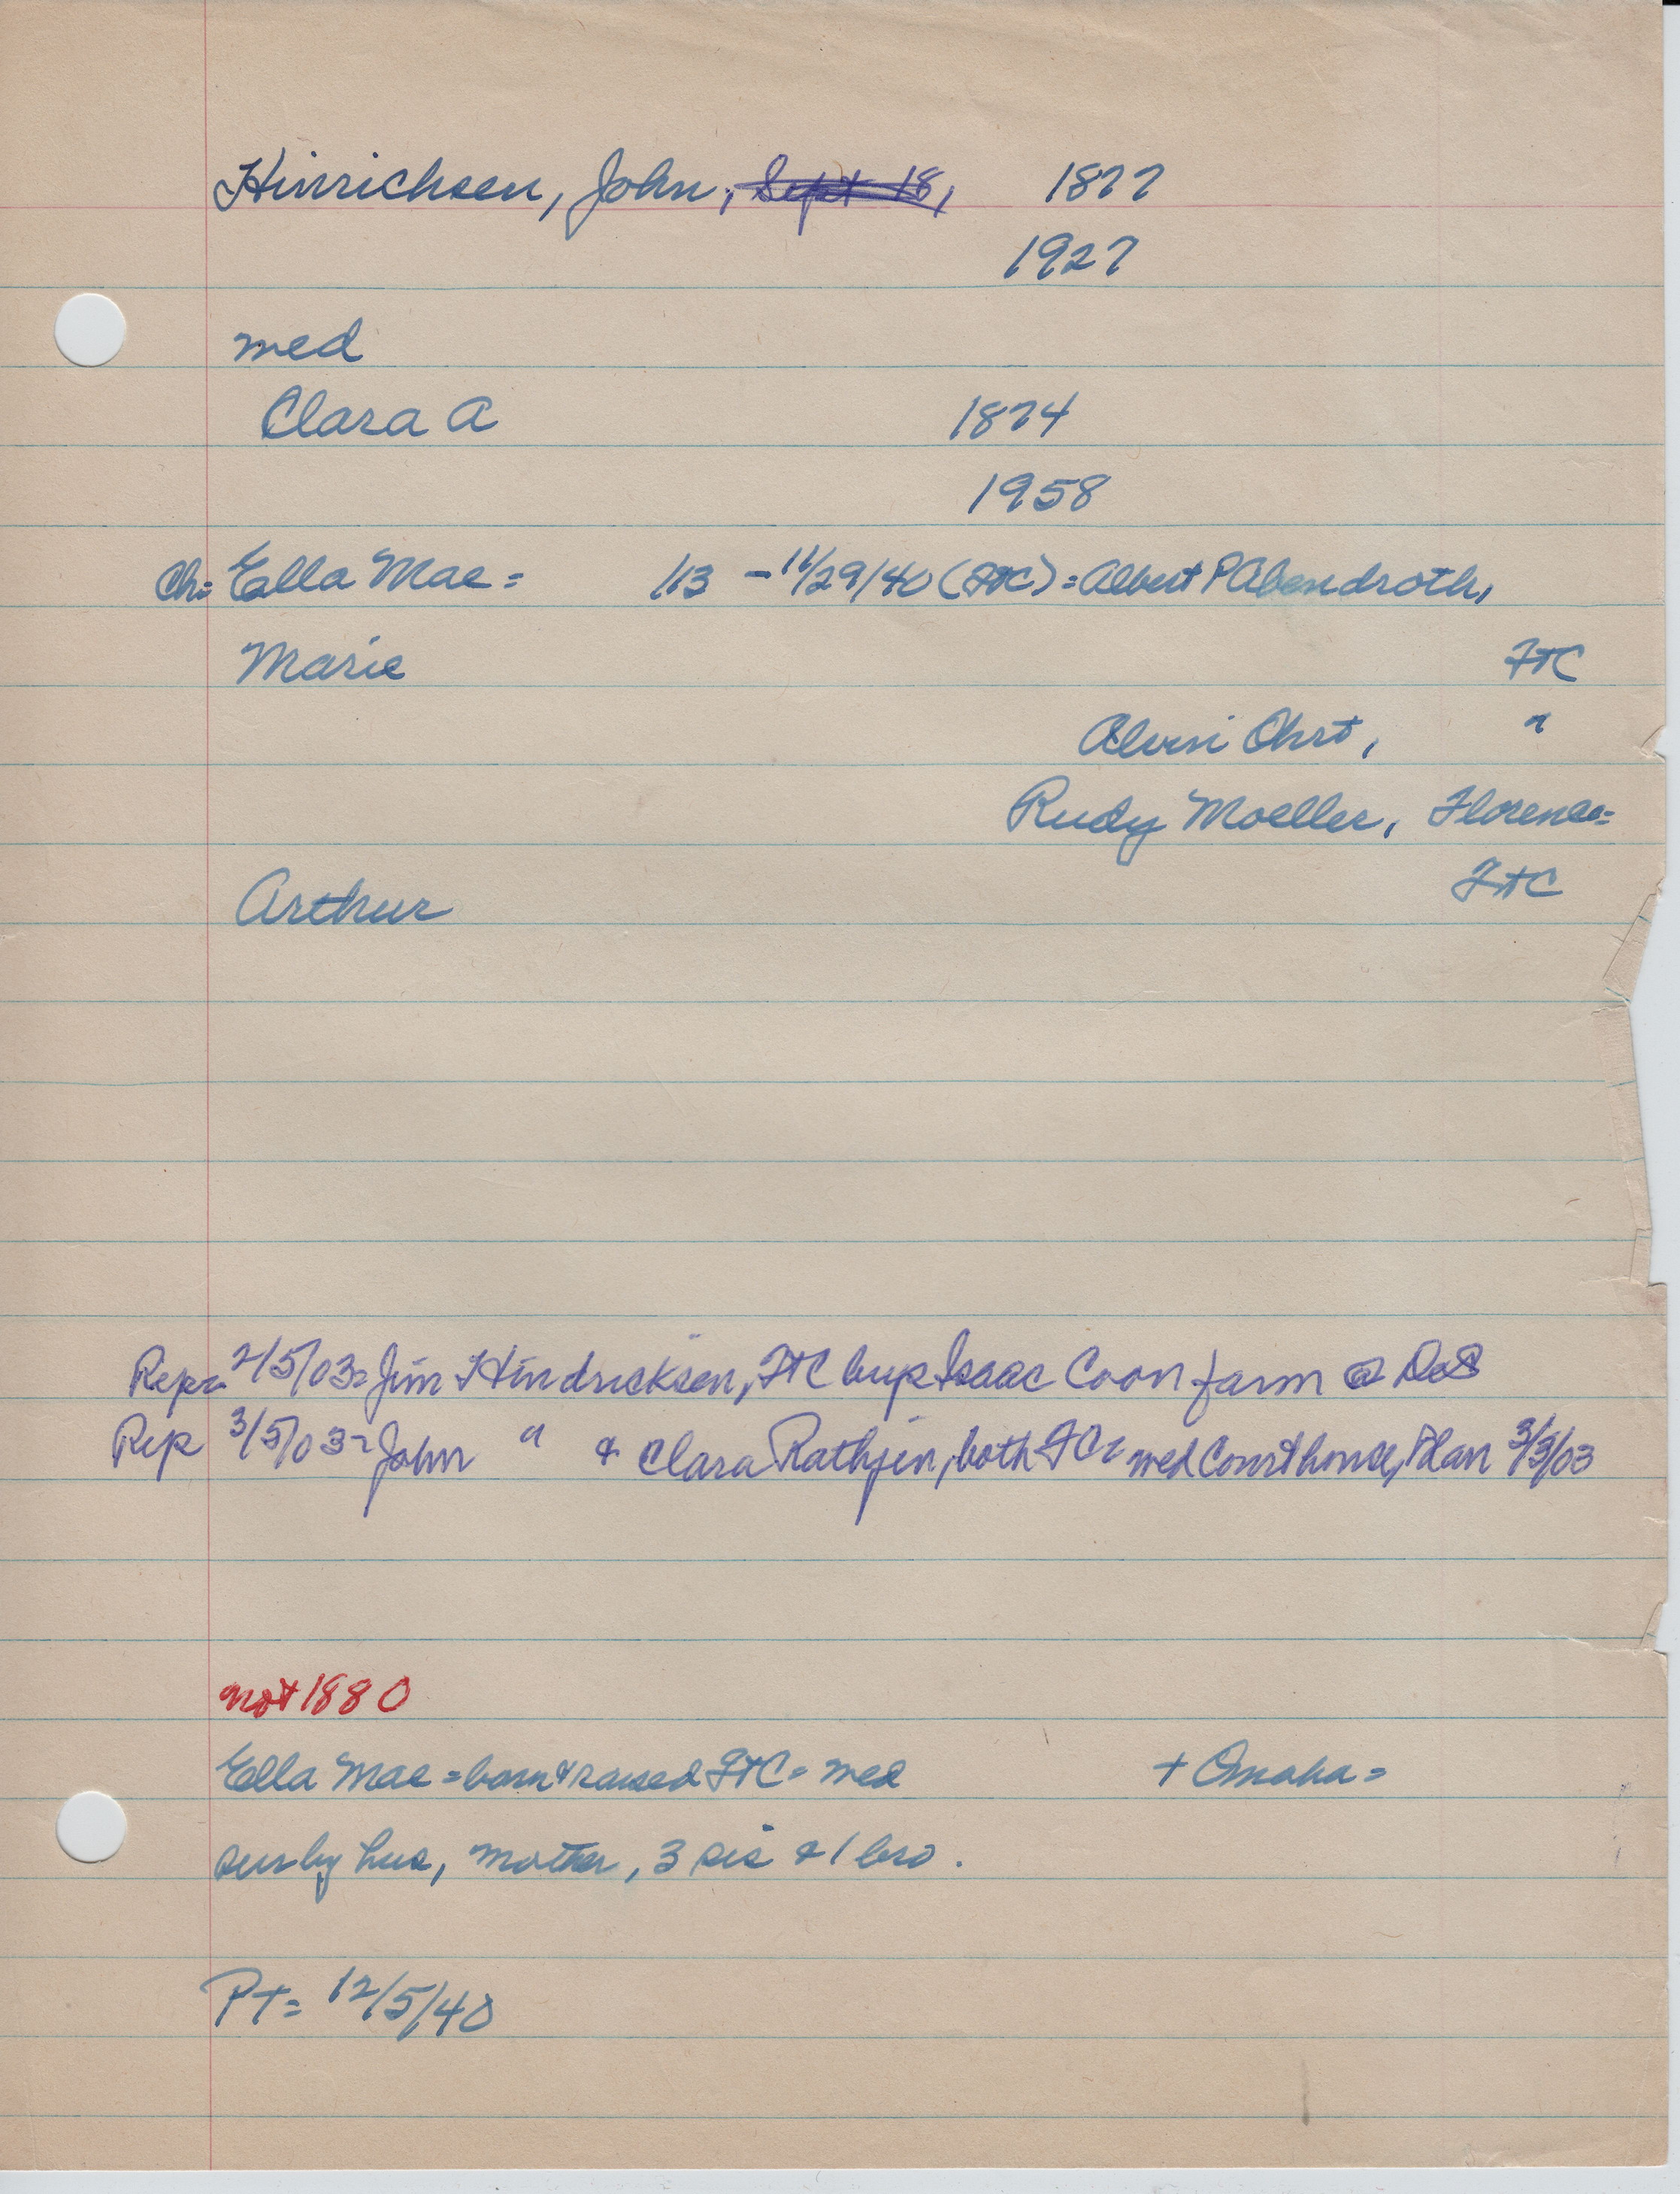 Hinrichsen, John, Sept 18, 1877
1927
med
Clara A 1874
1958
Ch= Ella Mae = 1/3 - 11/29/40 (FtC) = Albert P Abendroth,
Marie FtC
Alvin Ohrt, "
Rudy Moeller, Florence=
Arthur FtC
Rep= 2/5/03= Jim Hindricksen, FtC buys Isaac Coon farm @ DeS
Rep 3/5/03= John " & Clara Rathjen, both FC= med Courthouse, Blair 3/3/03
not 1880
Ella Mae = born & raised FtC = med + Omaha =
sur by hus, mother, 3 sis & 1 bro.
PT= 12/5/40